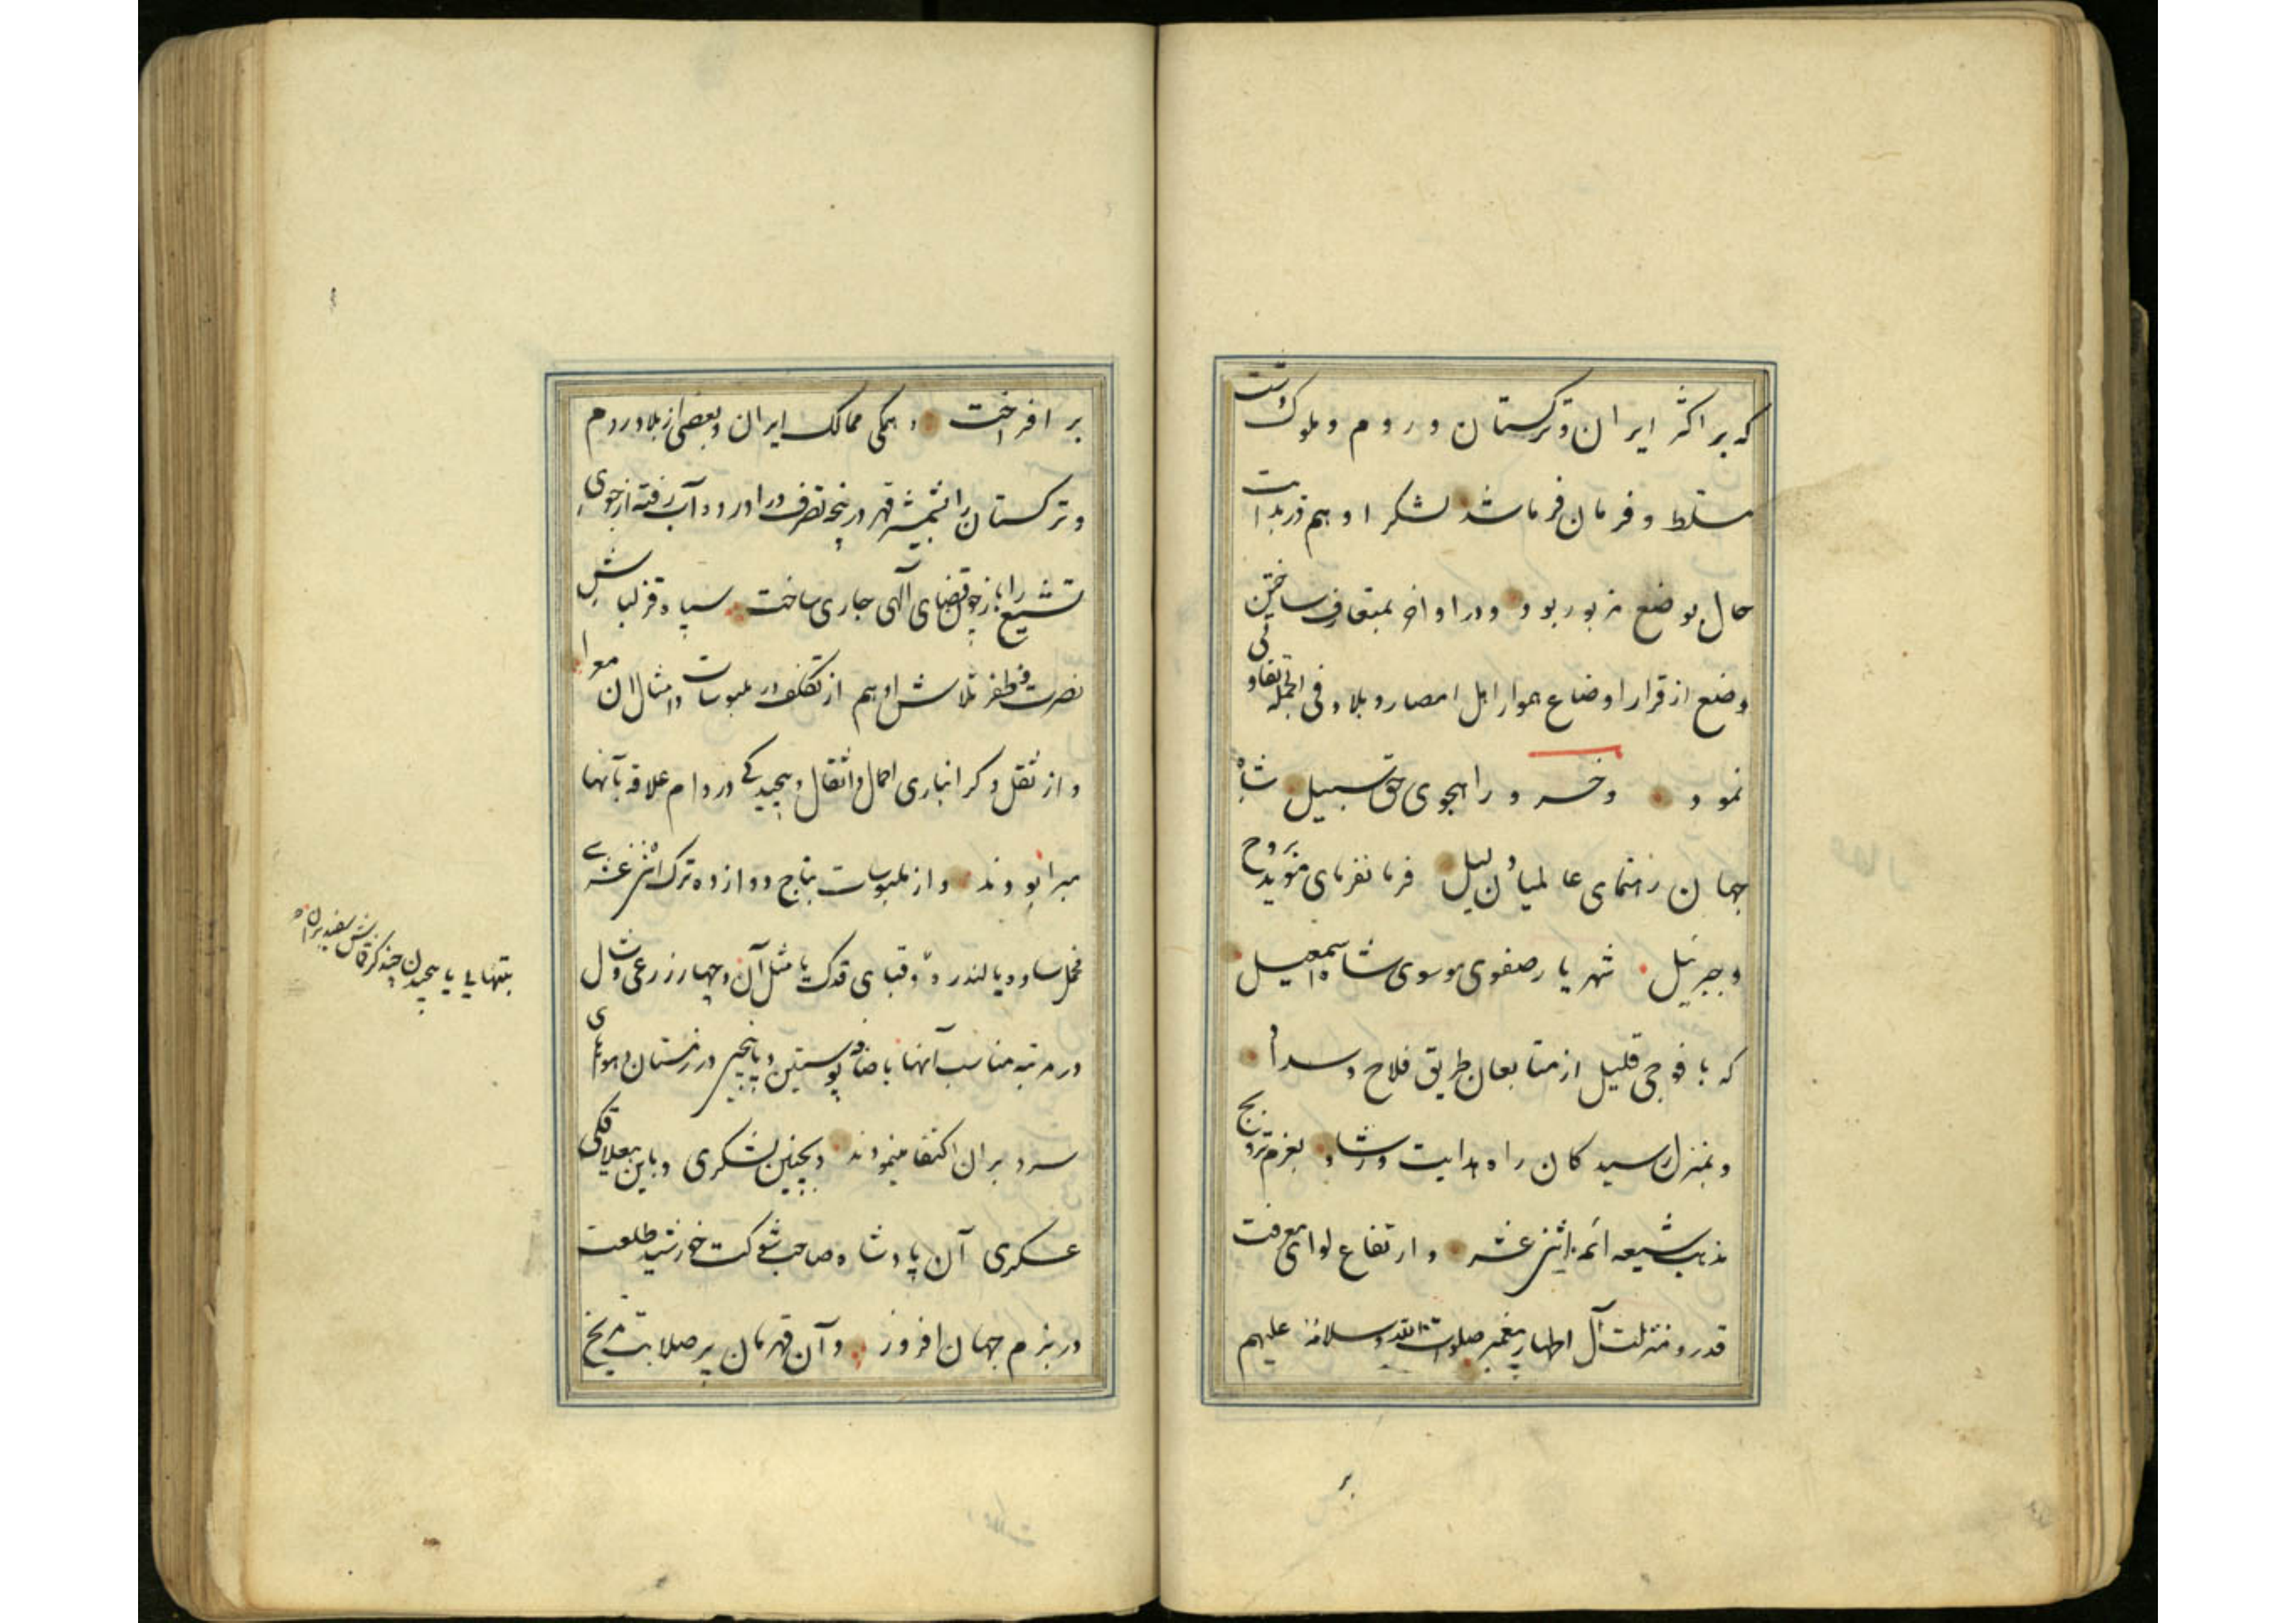 که بر اکثر ایران و ترکستان و روم و ملوک دشت
مسلط و فرمان فرما شد لشکر او هم در بدایت
حال بوضع مزبور بود و در اواخر بمتعارف ساختن
وضع از قرار اوضاع هموار اهل امصار و بلاد فی الجمله تفاوتی
نمود و خسرو راهجوی حق سبیل شاه
جهان رهنمای عالمیان دلیل فرمانفرمای مؤید بروح
و جبرئیل شهریار صفوی موسوی شاه اسمعیل
که با فوجی قلیل از متابعان طریق فلاح و سداد
و بمنزل رسیدکان راه هدایت و رشاد بعزم ترویج
مذهب شیعه ائمه اثنی عشر و ارتفاع لوای معرفت
قدر و منزلت آل اطهار پیغمبر صلوات الله و سلامه علیهم
بر
بر افراخت و همکی ممالک ایران و بعضی از بلاد روم
و ترکستان را بشمشیر قهر در پنجه تصرف در اورد و آب رفته از جوی
تشیع را باز چون قضای آلهی جاری ساخت سپاه قزلباش
نصرت و ظفر تلاش او هم از تکلف در ملبوسات و امثال ان معرا
و از ثقل و کرانباری احمال و اثقال و پیچیدکی در دام علاقه بآنها
مبرا بودند و از ملبوسات بتاج دوازده ترک اثنی عشری
مخمل ساده یا لندره و قبای قدک یا مثل آن و چهار زرعی و شال
در مرتبه مناسب آنها باضافه پوستین و پاپیچ در زمستان و هوای
سرد بران اکتفا مینمودند و بچنین لشکری و باین بیعلاقکی
عسکری آن پادشاه صاحب شوکت خورشید طلعت
در بزم جهان افروز و آن قهرمان پر صلابت مریخ
بتنهایی یا پیچیدن چند کز قماش سفید بران